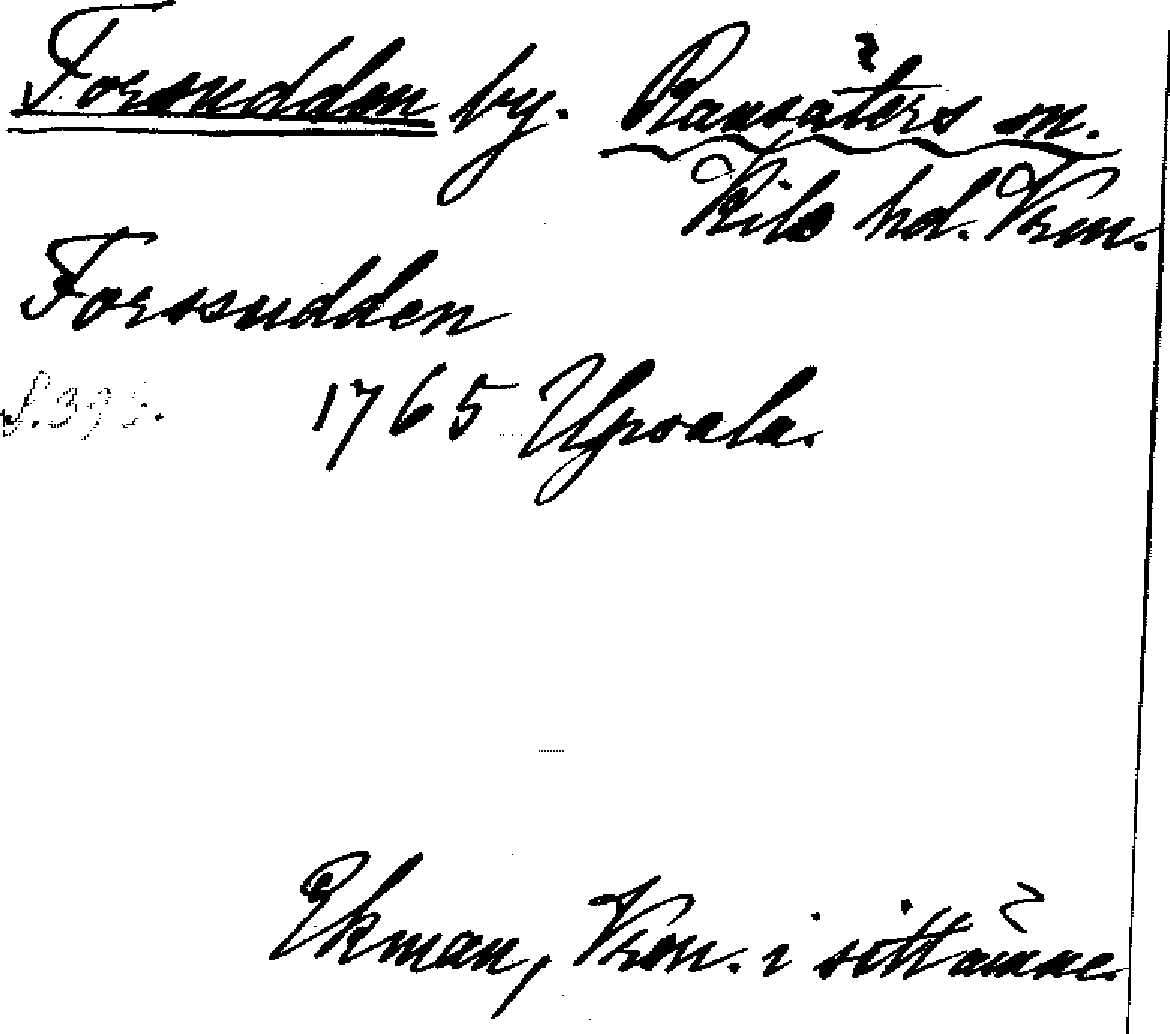 Forsudden by. Ransäters sn.
Kils hd. Vrm.
Forssudden
S. 393.
1765 Upsala.
Ekman, Vrm. i sitt ämne